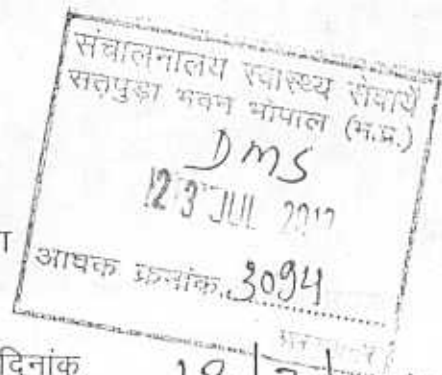 संचालनालय स्वास्थ्य सेवायें
सतपुड़ा भवन भोपाल (म.प्र.)
DMS
23 JUL
आवक क्रमांक 3094
दिनांक